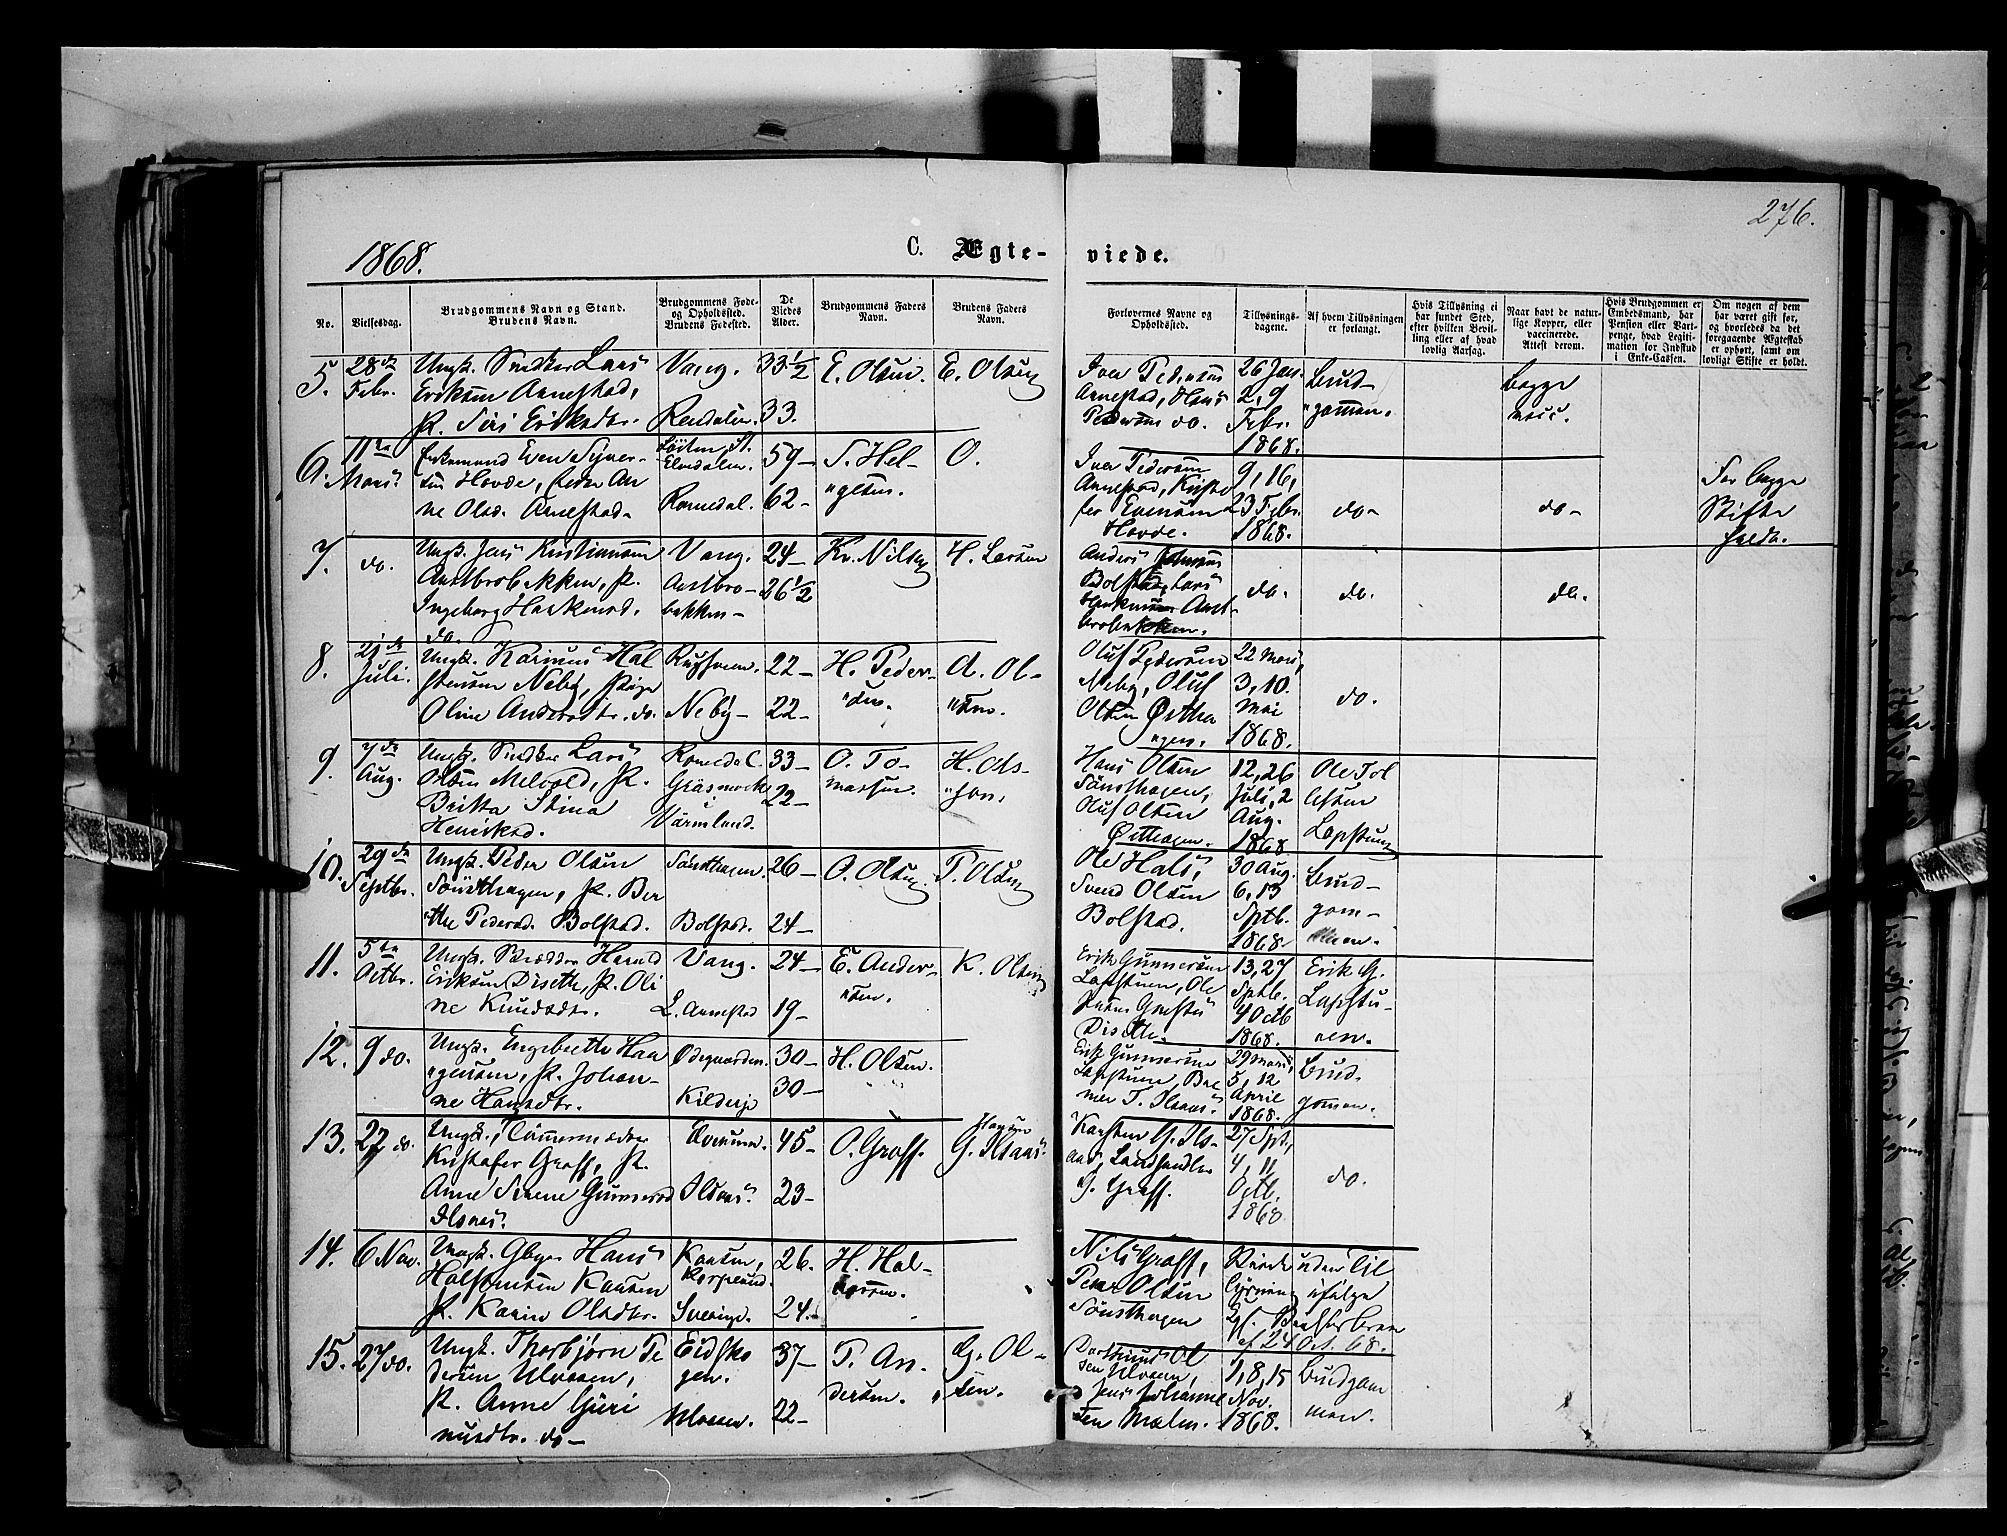 276.
1868.
C. Ægte-
viede.
No.
Vielsesdag.
Brudgommens Navn og Stand.
Brudens Navn.
Brudgommens Føde-
og Opholdssted.
Brudens Fødested.
De
Viedes
Alder.
Brudgommens Faders
Navn.
Brudens Faders
Navn.
Forlovernes Navne og
Opholdssted.
Tillysnings-
dagene.
Af hvem Tillysningen
er forlangt.
Hvis Tillysning ei
har fundet Sted,
efter hvilken Bevil-
ling eller af hvad
lovlig Aarsag.
Naar havt de natur-
lige Kopper, eller
vaccinerede.
Attest derom.
Hvis Brudgommen er
Embedsmand, har
Pension eller Vart-
penge, hvad Legiti-
mation for Indskud
i Enke-Cassen.
Om nogen af dem
har været gift før,
og hvorledes da det
foregaaende Ægteskab
er ophørt, samt om
lovligt Skifte er holdt.
5.
28de
Febr.
Ungk. Lars
Eriksen Arnestad,
P. Siri Eriksdtr.
Vang.
Rendalen.
33 1/2
33.
E. Olsen.
E. Olsen
Iver Pedersen
Arnestad, Hans
Pedersen do.
26 Jan.
2, 9
Febr.
1868.
Brud-
"gommen.
begge
vacc.
6.
11te
Mars
Enkemand Even Syver-
sen Hovde, Enke An
ne Olsd. Arnestad.
Løiten, St.
Elvedalen.
Romedal.
59-
62-
S. Hel-
"gesen.
O.
Iver Pedersen
Arnestad, Kristo
fer Evensen
Hovde.
9, 16,
23 Febr.
1868.
do-
do-
For begge
Skifte
holdt.
7.
do.
Ungk. Jens Kristiansen
Austbrobakken, P.
Ingeborg Haakensd.
do.
Vang.
Austbro-
bakken-
24-
26 1/2
Kr. Nilsen
H. Larsen
Anders Johnsen
Bolstad, Lars
Haakensen Aust-
brobakken.
do.
do.
do.
8.
21de
Juli.
Ungk. Karinus Hal
stensen Neby, Pige
Oline Andersdtr. do.
Neby-
22-
22-
H. Peder-
"sen.
A. Ol-
"sen.
Oluf Pedersen
Neby, Oluf
Olsen Østha
"gen.
22 Mars,
3, 10.
Mai
1868.
do.
9.
7de
Aug.
Ungk. Lars
Olsen Melvold, P.
Britta Stina
Henriksd.
Romedal.
Gräsmark
i
Värmland.
33-
22-
O. To-
massen.
Hans Olsen
Sønsthagen,
Oluf Olsen
Østhagen.
12, 26
Juli, 2
Aug.
1868
Ole Tol
lefsen
Lapstuen
10.
29de
Septbr.
Ungk. Peder Olsen
Sønsthagen, P. Ber
"the Pedersd. Bolstad.
Sønsthagen.
Bolstad.
26-
24-
O. Olsen.
P. Olsen
Ole Hals,
Svend Olsen
Bolstad.
30 Aug.
6, 13
Sptb.
1868.
Brud-
gom-
men.
11.
5te
Octbr.
Ungk. Skrædder Harald
Eriksen Diseth, P. Oli
ne Knudsdtr.
Vang.
L. Arnestad
24-
19-
E. Ander-
"sen.
K. Olsen
Erik Gunnersen
Lapstuen, Ole
Diseth.
13, 27
Sptb.
4 Octb
1868.
Erik G.
Lapstu-
en.
12.
9 do.
Ungk. Engebreth Haa
"gensen, P. Johan-
ne Hansdtr.
Ødegaarden.
30-
30-
H. Olsen.
Erik Gunnersen
Lapstuen,
29 Mars,
5, 12
April
1868.
Brud-
gommen.
13.
22 do.
Ungk.
Kristofer Graff, P.
Anne Sirene Gunnersd
Ilsaas.
Ilsaas.
45-
23-
O. Graff.
G. Ilsaas.
Karsten G. Ils-
aas, Landhandler
G. Graff.
27 Spt,
4, 11
Octb.
1868
do.
14.
6 Nov.
Ungk. Hans
Halstensen Kaasen
P. Karin Olsdtr.
Kaasen,
Sverige.
26.
24.
H. Hal-
Nils Graff,
Peder Olsen
Sønsthagen
Viede uden Til
lysning ifølge
af 24 Oct. 68.
15.
27 do.
Ungk. Thorbjørn Pe
dersen Ulvaaen,
P. Anne Gjeri
nusdtr. do-
Eidsko
gen.
37-
22-
P. An.
dersen.
G. Ol-
"sen.
Jens Johanne
sen Malm.
1, 8, 15
Nov.
1868.
Brudgom
men.